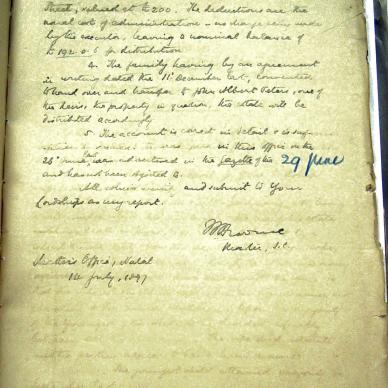 Street, valued at £200. The deductions are the
usual cost of administration - no charge being made
by the executor, leaving a nominal balance of
£192.0.6 for distribution
4. The family having by an agreement
in writing dated the 11th December last, consented
to hand over and transfer to John Albert Peters, one of
the heirs, the property in question, the estate will be
distributed accordingly
5. The account is correct in detail
in this office on the
28 June, last advertised in the Gazette of the 29 June
and has not been objected to.
All which I certify and submit to Your
Lordships as my report.
Master, S.C.
Master's Office, Natal
14 July, 1897